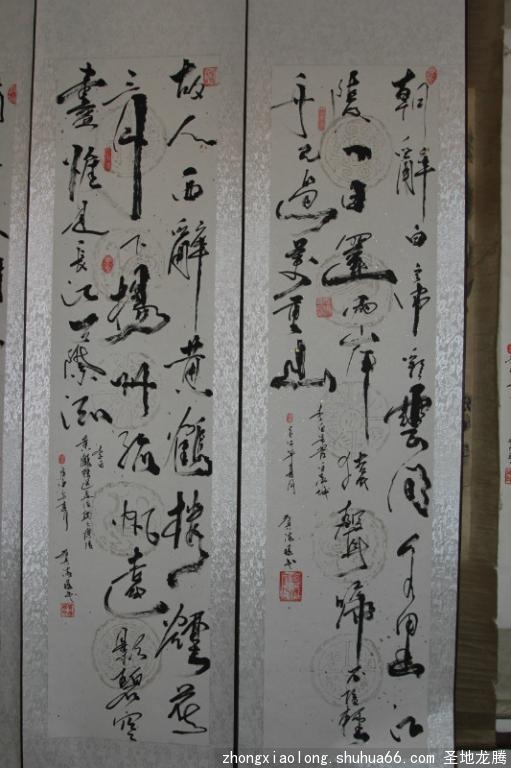 朝辭白帝彩雲間千里江
陵一日還兩岸猿聲啼不住輕
舟已過萬重山
故人西辭黃鶴樓煙花
三月下揚州孤帆遠影碧空
盡惟見長江天際流
李白
黃鶴樓送孟浩然之廣陵
zhongxiaolong.shuhua66.com 圣地龙腾